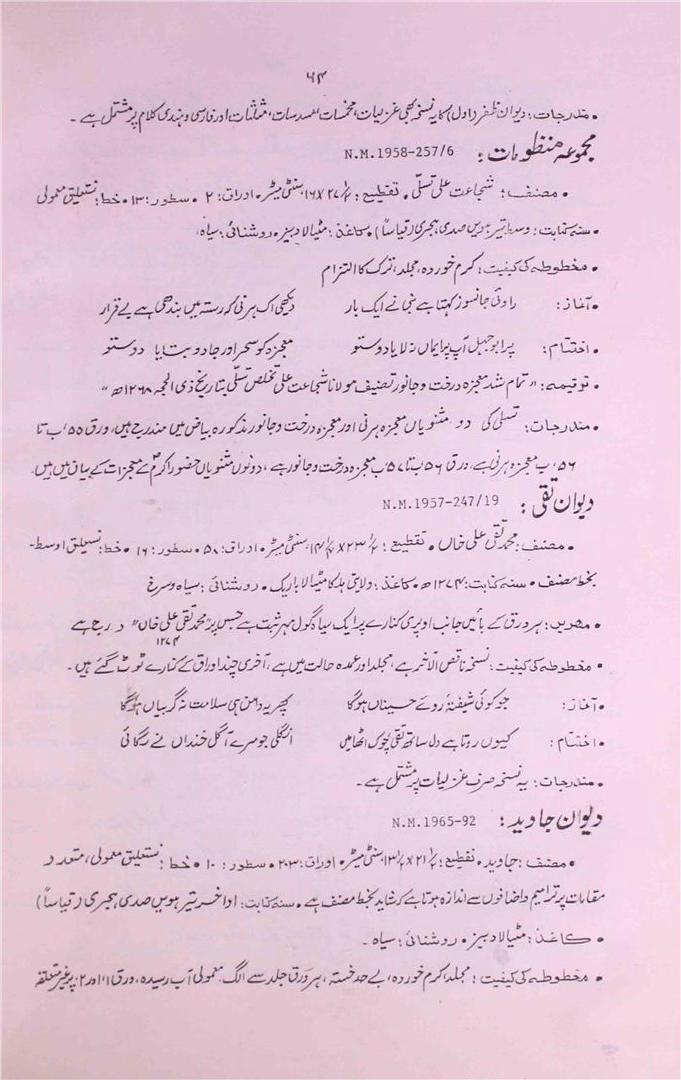 ۶۴
• مندرجات: دیوان ظفر (اول) کا یہ نسخہ بھی غزلیات، مخمسات، مسدسات، مثلثات اور فارسی و ہندی کلام پر مشتمل ہے۔
مجموعہ منظومات: N.M.1958-257/6
• مصنف: شجاعت علی تسلّی • تقطیع: ۲۷½×۱۶ سنٹی میٹر • اوراق: ۲ • سطور: ۱۳ • خط: نستعلیق معمولی
• سنہ کتابت: وسط تیرہویں صدی ہجری (قیاساً) • کاغذ: مٹیالا دبیز • روشنائی: سیاہ،
• مخطوطہ کی کیفیت: کرم خوردہ، مجلد، ترک کا التزام
• آغاز: راوئ جانسوز کہتا ہے نبی نے ایک بار دیکھی اک ہرنی کہ رستہ میں بندھی ہے بے قرار
• اختتام: پر ابو جہل آپ پر ایماں نہ لایا دوستو معجزہ کو سحر اور جادو بتایا دوستو
• ترقیمہ: "تمام شد معجزہ درخت و جانور تصنیف مولانا شجاعت علی تخلص تسلّی بتاریخ ذی الحجہ ۱۲۶۸ھ"
• مندرجات: تسلّی کی دو مثنویاں معجزہ ہرنی اور معجزہ درخت و جانور مذکورہ بیاض میں مندرج ہیں، ورق ۵۵ ب تا
۵۶ ب معجزہ ہرنی ہے، ورق ۵۶ ب تا ۵۷ ب معجزہ درخت و جانور ہے، دونوں مثنویاں حضور اکرمؐ کے معجزات کے بیان میں ہیں۔
دیوان تقی: N.M.1957-247/19
• مصنف: محمد تقی علی خاں • تقطیع: ۲۳½×۱۴½ سنٹی میٹر • اوراق: ۵۸ • سطور: ۱۶ • خط: نستعلیق اوسط-
بخط مصنف • سنہ کتابت: ۱۲۷۴ھ • کاغذ: ولایتی ہلکا مٹیالا باریک • روشنائی: سیاہ و سرخ
• مہریں: ہر ورق کے بائیں جانب اوپری کنارے پر ایک سیاہ گول مہر ثبت ہے جس پر "محمد تقی علی خاں" درج ہے
۱۲۷۴
• مخطوطہ کی کیفیت: نسخہ ناقص الآخر ہے، مجلد اور عمدہ حالت میں ہے، آخری چند اوراق کے کنارے ٹوٹ گئے ہیں۔
• آغاز: جو کوئی شیفتۂ روئے حسیناں ہوگا پھر یہ دامن ہی سلامت نہ گریباں ہوگا
• اختتام: کیوں روتا ہے دل ساتھ تقی چوک اٹھا میں انگلی جو سرے آ گل خنداں نے لگائی
• مندرجات: یہ نسخہ صرف غزلیات پر مشتمل ہے۔
دیوان جاوید: N.M.1965-92
• مصنف: جاوید • تقطیع: ۲۱½×۱۳½ سنٹی میٹر • اوراق: ۲۰۳ • سطور: ۱۰ • خط: نستعلیق معمولی، متعدد
مقامات پر ترامیم و اضافوں سے اندازہ ہوتا ہے کہ شاید بخط مصنف ہے • سنہ کتابت: اواخر تیرہویں صدی ہجری (قیاساً)
• کاغذ: مٹیالا دبیز • روشنائی: سیاہ۔
• مخطوطہ کی کیفیت: مجلد، کرم خوردہ، بے حد خستہ، ہر ورق جلد سے الگ، معمولی آب رسیدہ، ورق ۱، اور ۲، پر غیر متعلقہ